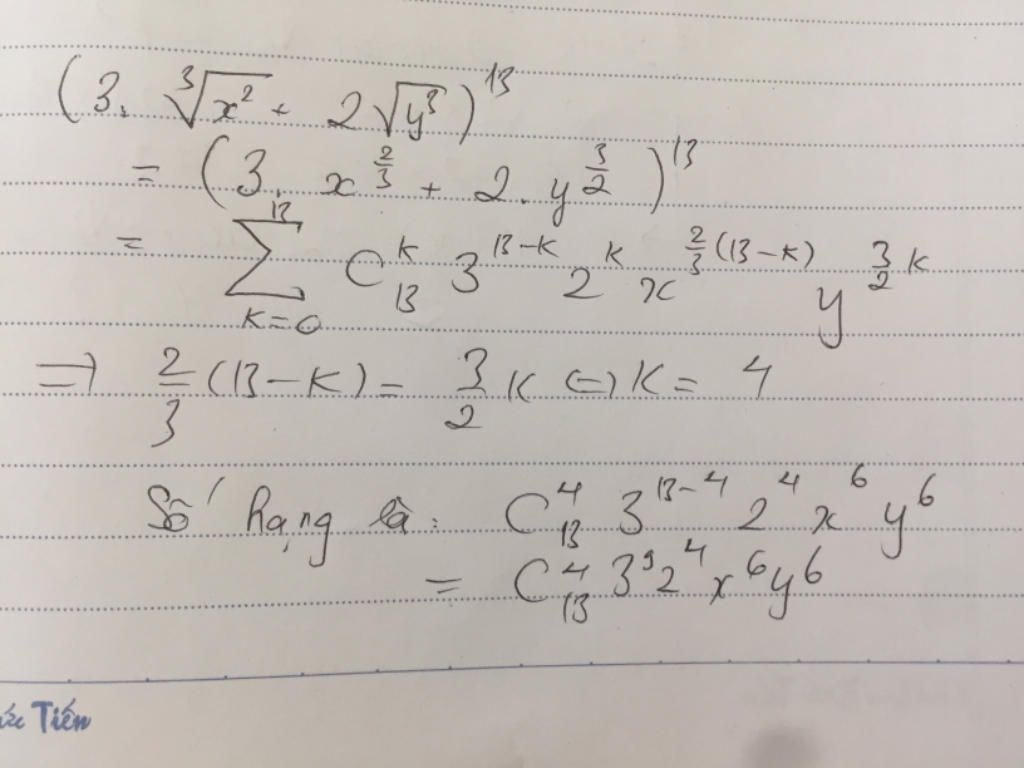 (3. ∛x² + 2√y³)¹³
= (3. x^{2/3} + 2. y^{3/2})¹³
= ∑_{K=0}^{13} C_{13}^{K} 3^{13-K} 2^{K} x^{2/3 (13-K)} y^{3/2 K}
=> 2/3 (13-K) = 3/2 K <=> K = 4
Số hạng là: C_{13}^{4} 3^{13-4} 2^{4} x^{6} y^{6}
= C_{13}^{4} 3^{9} 2^{4} x^{6} y^{6}
Tiến